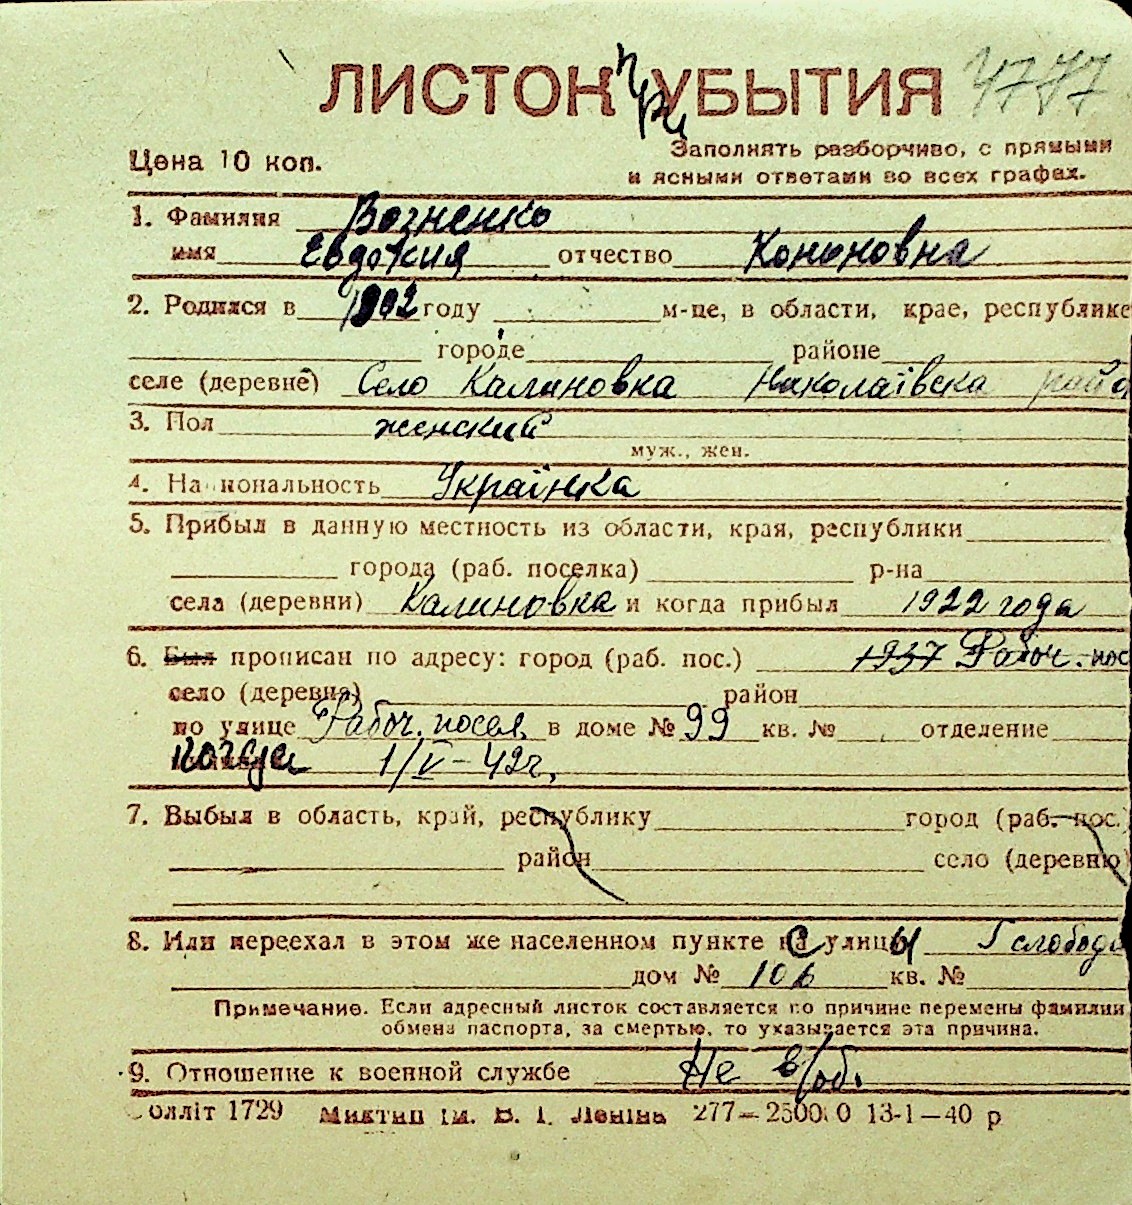 ЛИСТОК при УБЫТИЯ 4777
Цена 10 коп.
Заполнять разборчиво, с прямыми
и ясными ответами во всех графах.
1. Фамилия Вогненко
имя Евдокия отчество Кононовна
2. Родился в 1902 году м-це, в области, крае, республике
городе районе
селе (деревне) Село Калиновка Николаївска райо
3. Пол женский
муж., жен.
4. Национальность Українка
5. Прибыл в данную местность из области, края, республики
города (раб. поселка) р-на
села (деревни) Калиновка и когда прибыл 1922 года
6. Был прописан по адресу: город (раб. пос.) 1937 Рабоч. пос
село (деревня) район
по улице Рабоч. посел. в доме № 99 кв. № отделение
1/V-42г.
7. Выбыл в область, край, республику город (раб. пос.)
район село (деревню)
8. Или переехал в этом же населенном пункте С улицы Г слобода
дом № 106 кв. №
Примечание. Если адресный листок составляется по причине перемены фамилии
обмена паспорта, за смертью, то указывается эта причина.
9. Отношение к военной службе Не в/об.
олліт 1729 Миктип ім. В. І. Леніна 277—2500 0 13-1—40 р